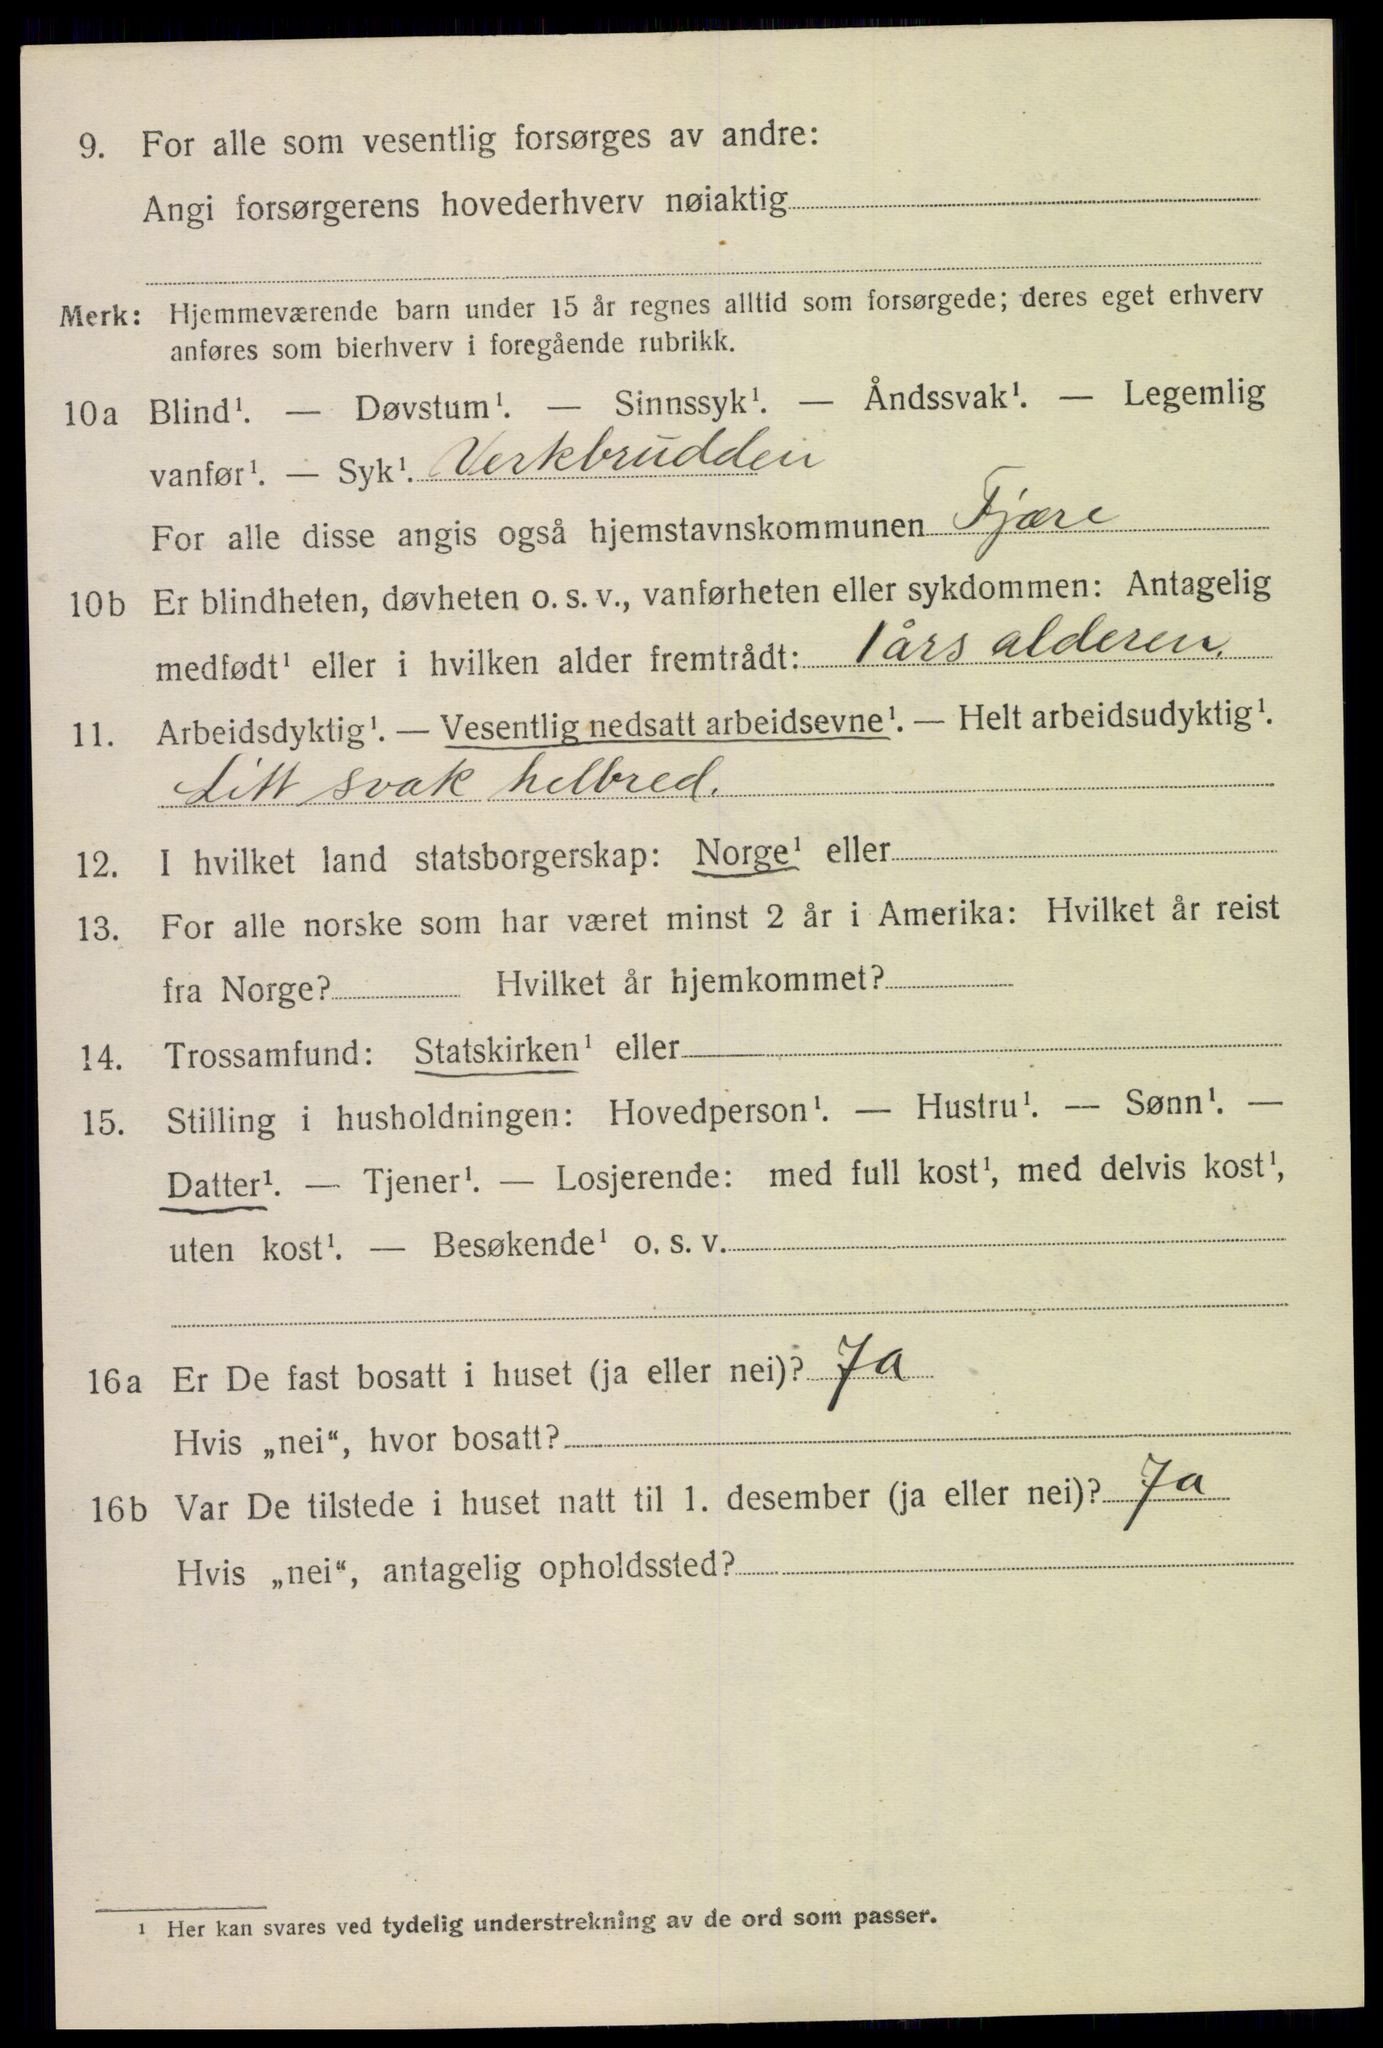 9. For alle som vesentlig forsørges av andre:
Angi forsørgerens hovederhverv nøiaktig
Merk: Hjemmeværende barn under 15 år regnes alltid som forsørgede; deres eget erhverv
anføres som bierhverv i foregående rubrikk.
10a Blind¹. — Døvstum¹. — Sinnssyk¹. — Åndssvak¹. — Legemlig
vanfør¹. — Syk¹. Verkbrudden
For alle disse angis også hjemstavnskommunen Fjære
10b Er blindheten, døvheten o. s. v., vanførheten eller sykdommen: Antagelig
medfødt¹ eller i hvilken alder fremtrådt: 1 års alderen.
11. Arbeidsdyktig¹. — Vesentlig nedsatt arbeidsevne¹. — Helt arbeidsudyktig¹.
Litt svak helbred.
12. I hvilket land statsborgerskap: Norge¹ eller
13. For alle norske som har været minst 2 år i Amerika: Hvilket år reist
fra Norge? Hvilket år hjemkommet?
14. Trossamfund: Statskirken¹ eller
15. Stilling i husholdningen: Hovedperson¹. — Hustru¹. — Sønn¹. —
Datter¹. — Tjener¹. — Losjerende: med full kost¹, med delvis kost¹,
uten kost¹. — Besøkende¹ o. s. v.
16a Er De fast bosatt i huset (ja eller nei)? Ja
Hvis „nei“, hvor bosatt?
16b Var De tilstede i huset natt til 1. desember (ja eller nei)? Ja
Hvis „nei“, antagelig opholdssted?
¹ Her kan svares ved tydelig understrekning av de ord som passer.